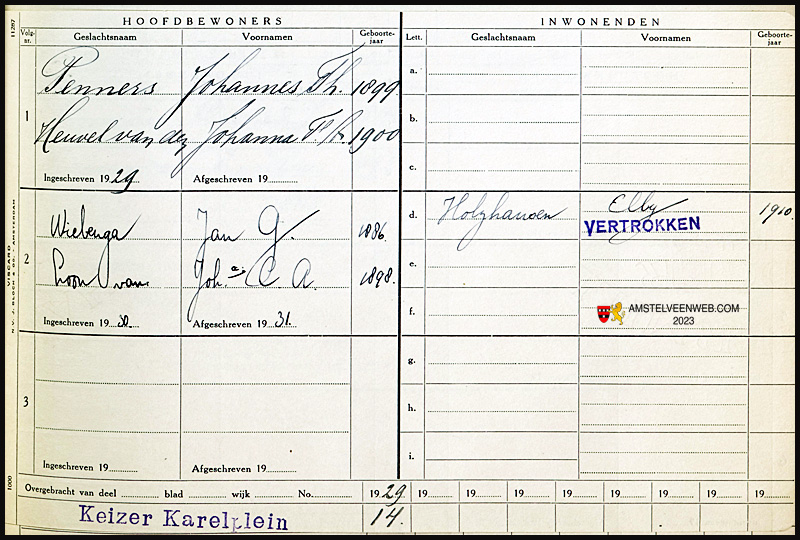 11287
HOOFDBEWONERS
INWONENDEN
Volg-nr. Geslachtsnaam Voornamen Geboorte-jaar
Lett. Geslachtsnaam Voornamen Geboorte-jaar
1
Penners Johannes Th. 1899
Heuvel van der Johanna 1900
Ingeschreven 1929 Afgeschreven 19
a.
b.
c.
2
Wiebenga Jan G. 1886.
Loon van Joh.a C A. 1898.
Ingeschreven 1930. Afgeschreven 1931.
d. Holzhausen Elby 1910.
VERTROKKEN
e.
f.
AMSTELVEENWEB.COM
2023
3
Ingeschreven 19 Afgeschreven 19
g.
h.
i.
Overgebracht van deel blad wijk No. 1929 19 19 19 19 19 19 19 19
Keizer Karelplein 14.
1000
VISCARD
AMSTERDAM